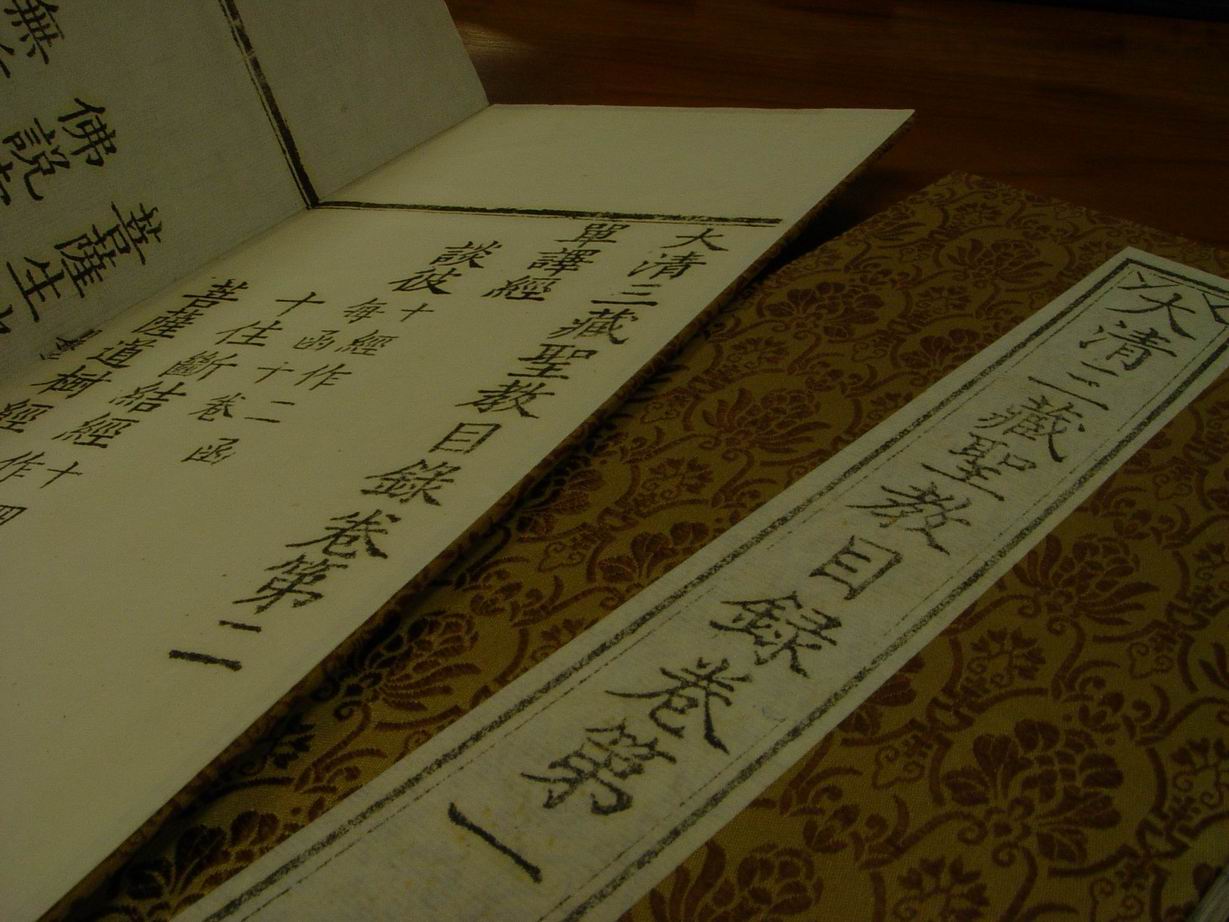 大清三藏聖教目錄卷第一
大清三藏聖教目錄卷第二
單譯經
談彼
十經作二函
每函十卷
十住斷結經十四
作
菩薩道樹經
菩薩生
佛說
無